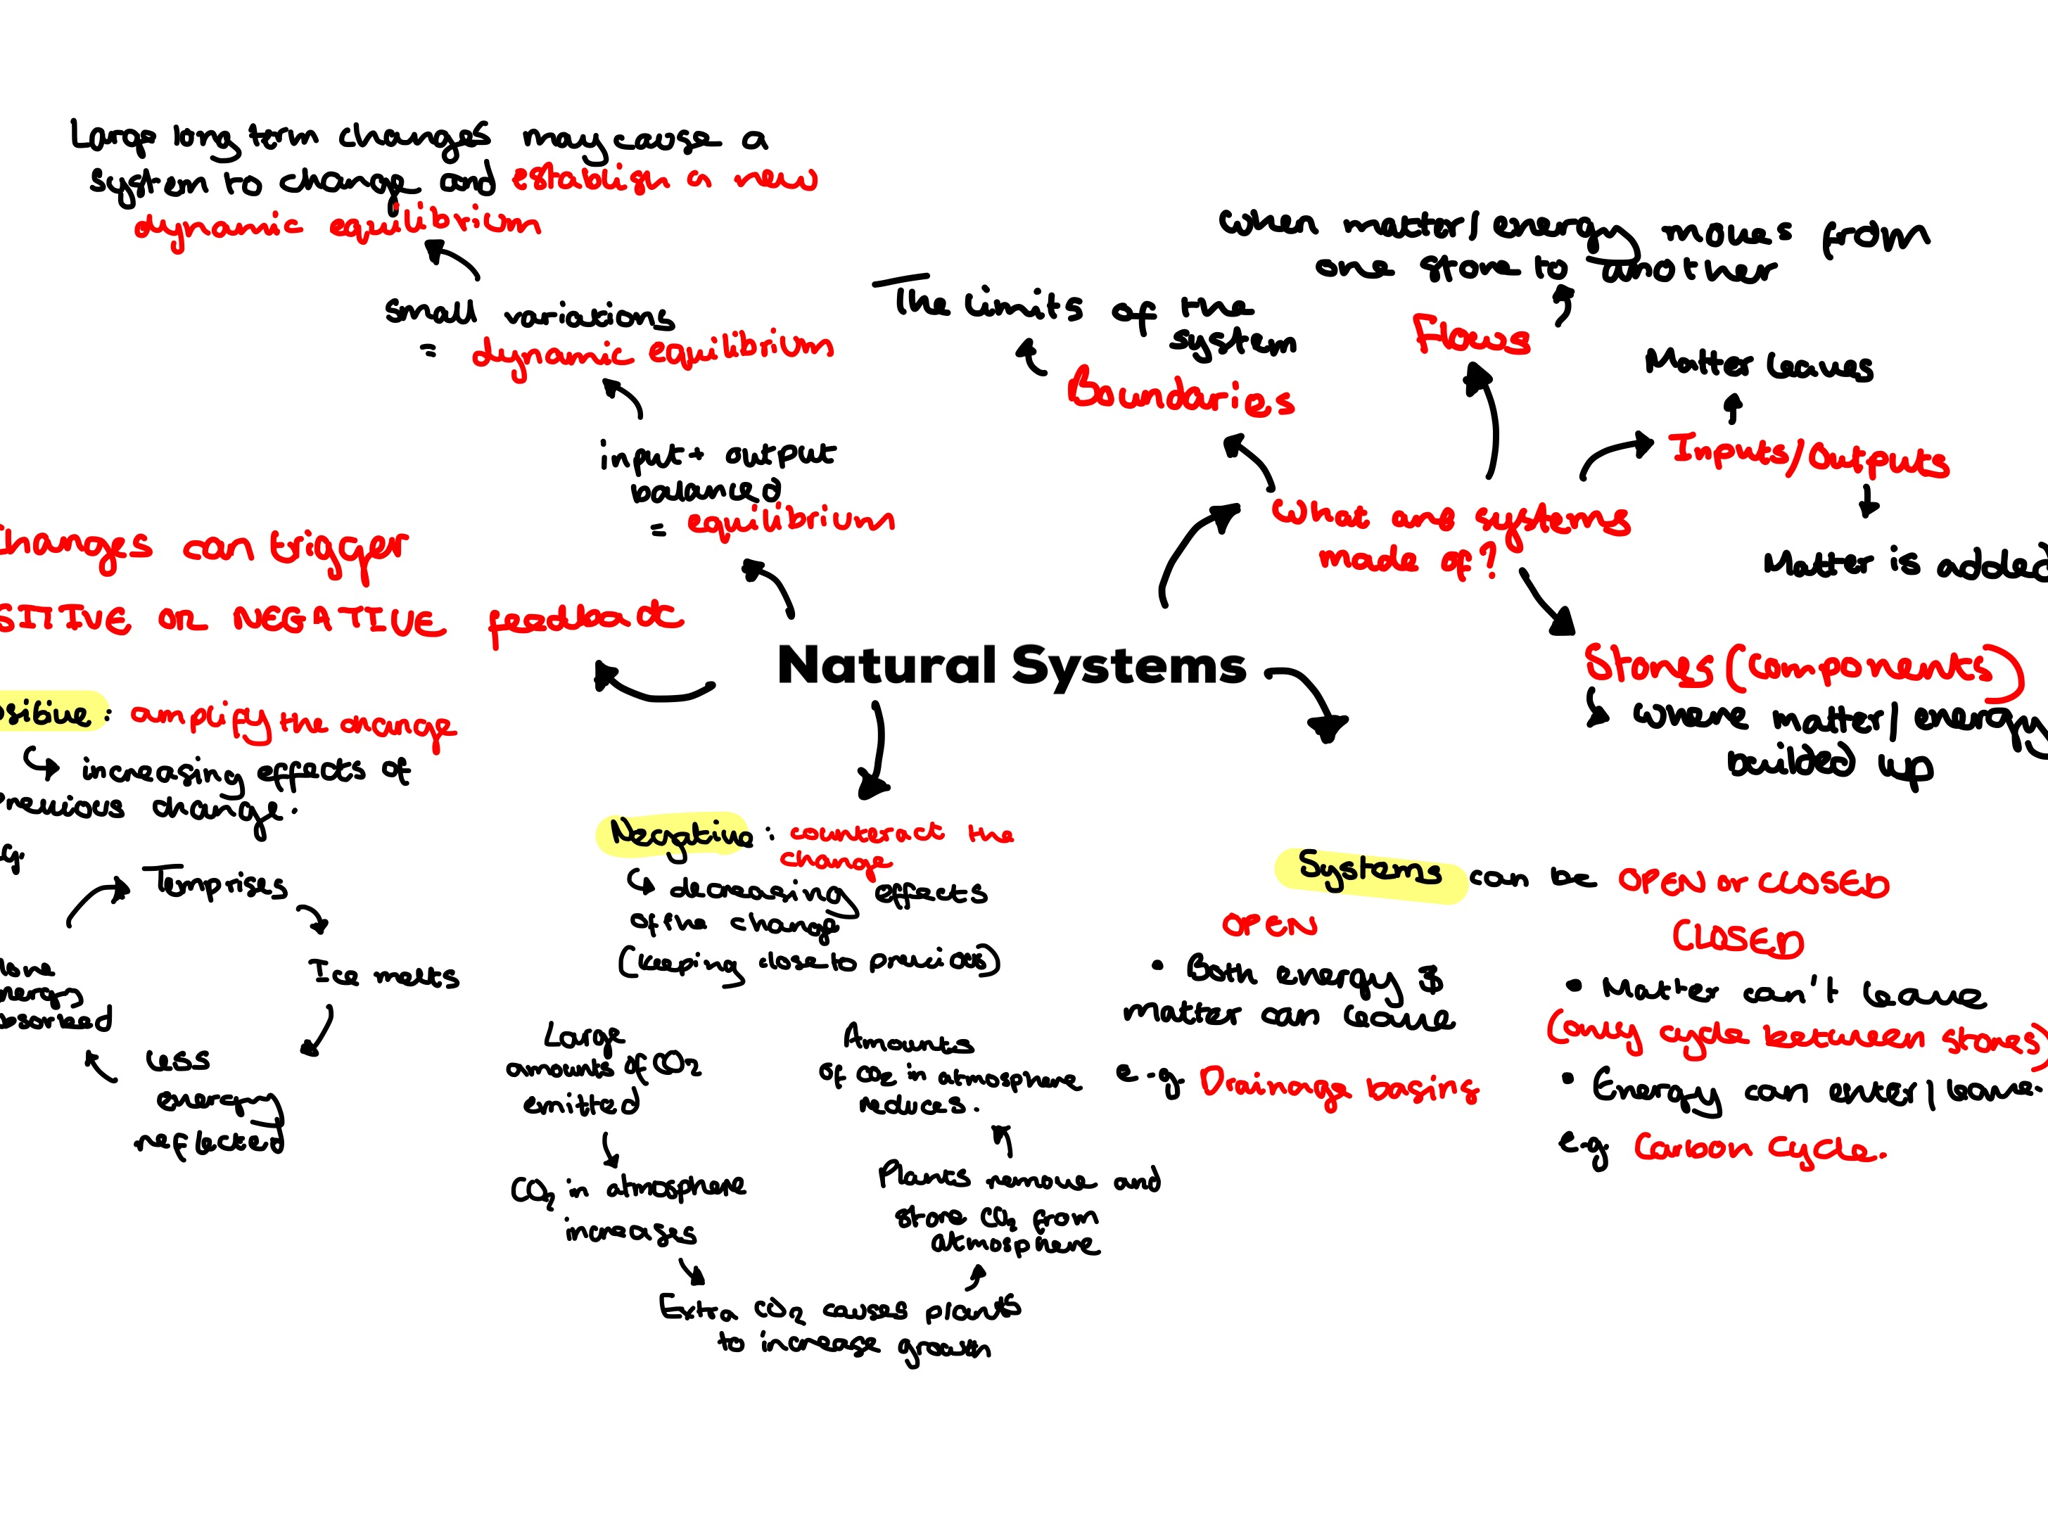 Large long term changes may cause a
system to change and establish a new
dynamic equilibrium
small variations
= dynamic equilibrium
input + output
balanced
= equilibrium
changes can trigger
SITIVE OR NEGATIVE feedback
Natural Systems
ositive: amplify the change
increasing effects of
previous change.
.g.
Temp rises
Ice melts
less
energy
reflected
more
energy
absorbed
Negative: counteract the
change
decreasing effects
of the change
(keeping close to previous)
Large
amounts of CO2
emitted
CO2 in atmosphere
increases
Extra CO2 causes plants
to increase growth
Plants remove and
store CO2 from
atmosphere
Amounts
of CO2 in atmosphere
reduces.
What are systems
made of?
Boundaries
The limits of the
system
Flows
when matter/energy moves from
one store to another
Inputs/Outputs
Matter leaves
Matter is added
Stores (components)
where matter/energy
builded up
Systems can be OPEN or CLOSED
OPEN
• Both energy &
matter can leave
e.g. Drainage basins
CLOSED
• Matter can't leave
(only cycle between stores)
• Energy can enter/leave.
e.g. Carbon Cycle.